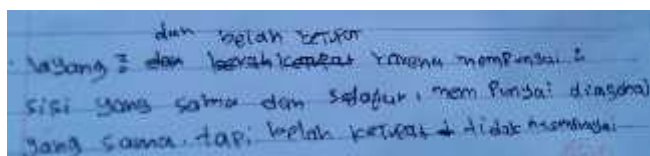 dan belah ketupat
layang2 dan belah ketupat karena mempunyai 2
sisi yang sama dan sejajar, mempunyai diagonal
yang sama. tapi belah ketupat tidak mempunyai